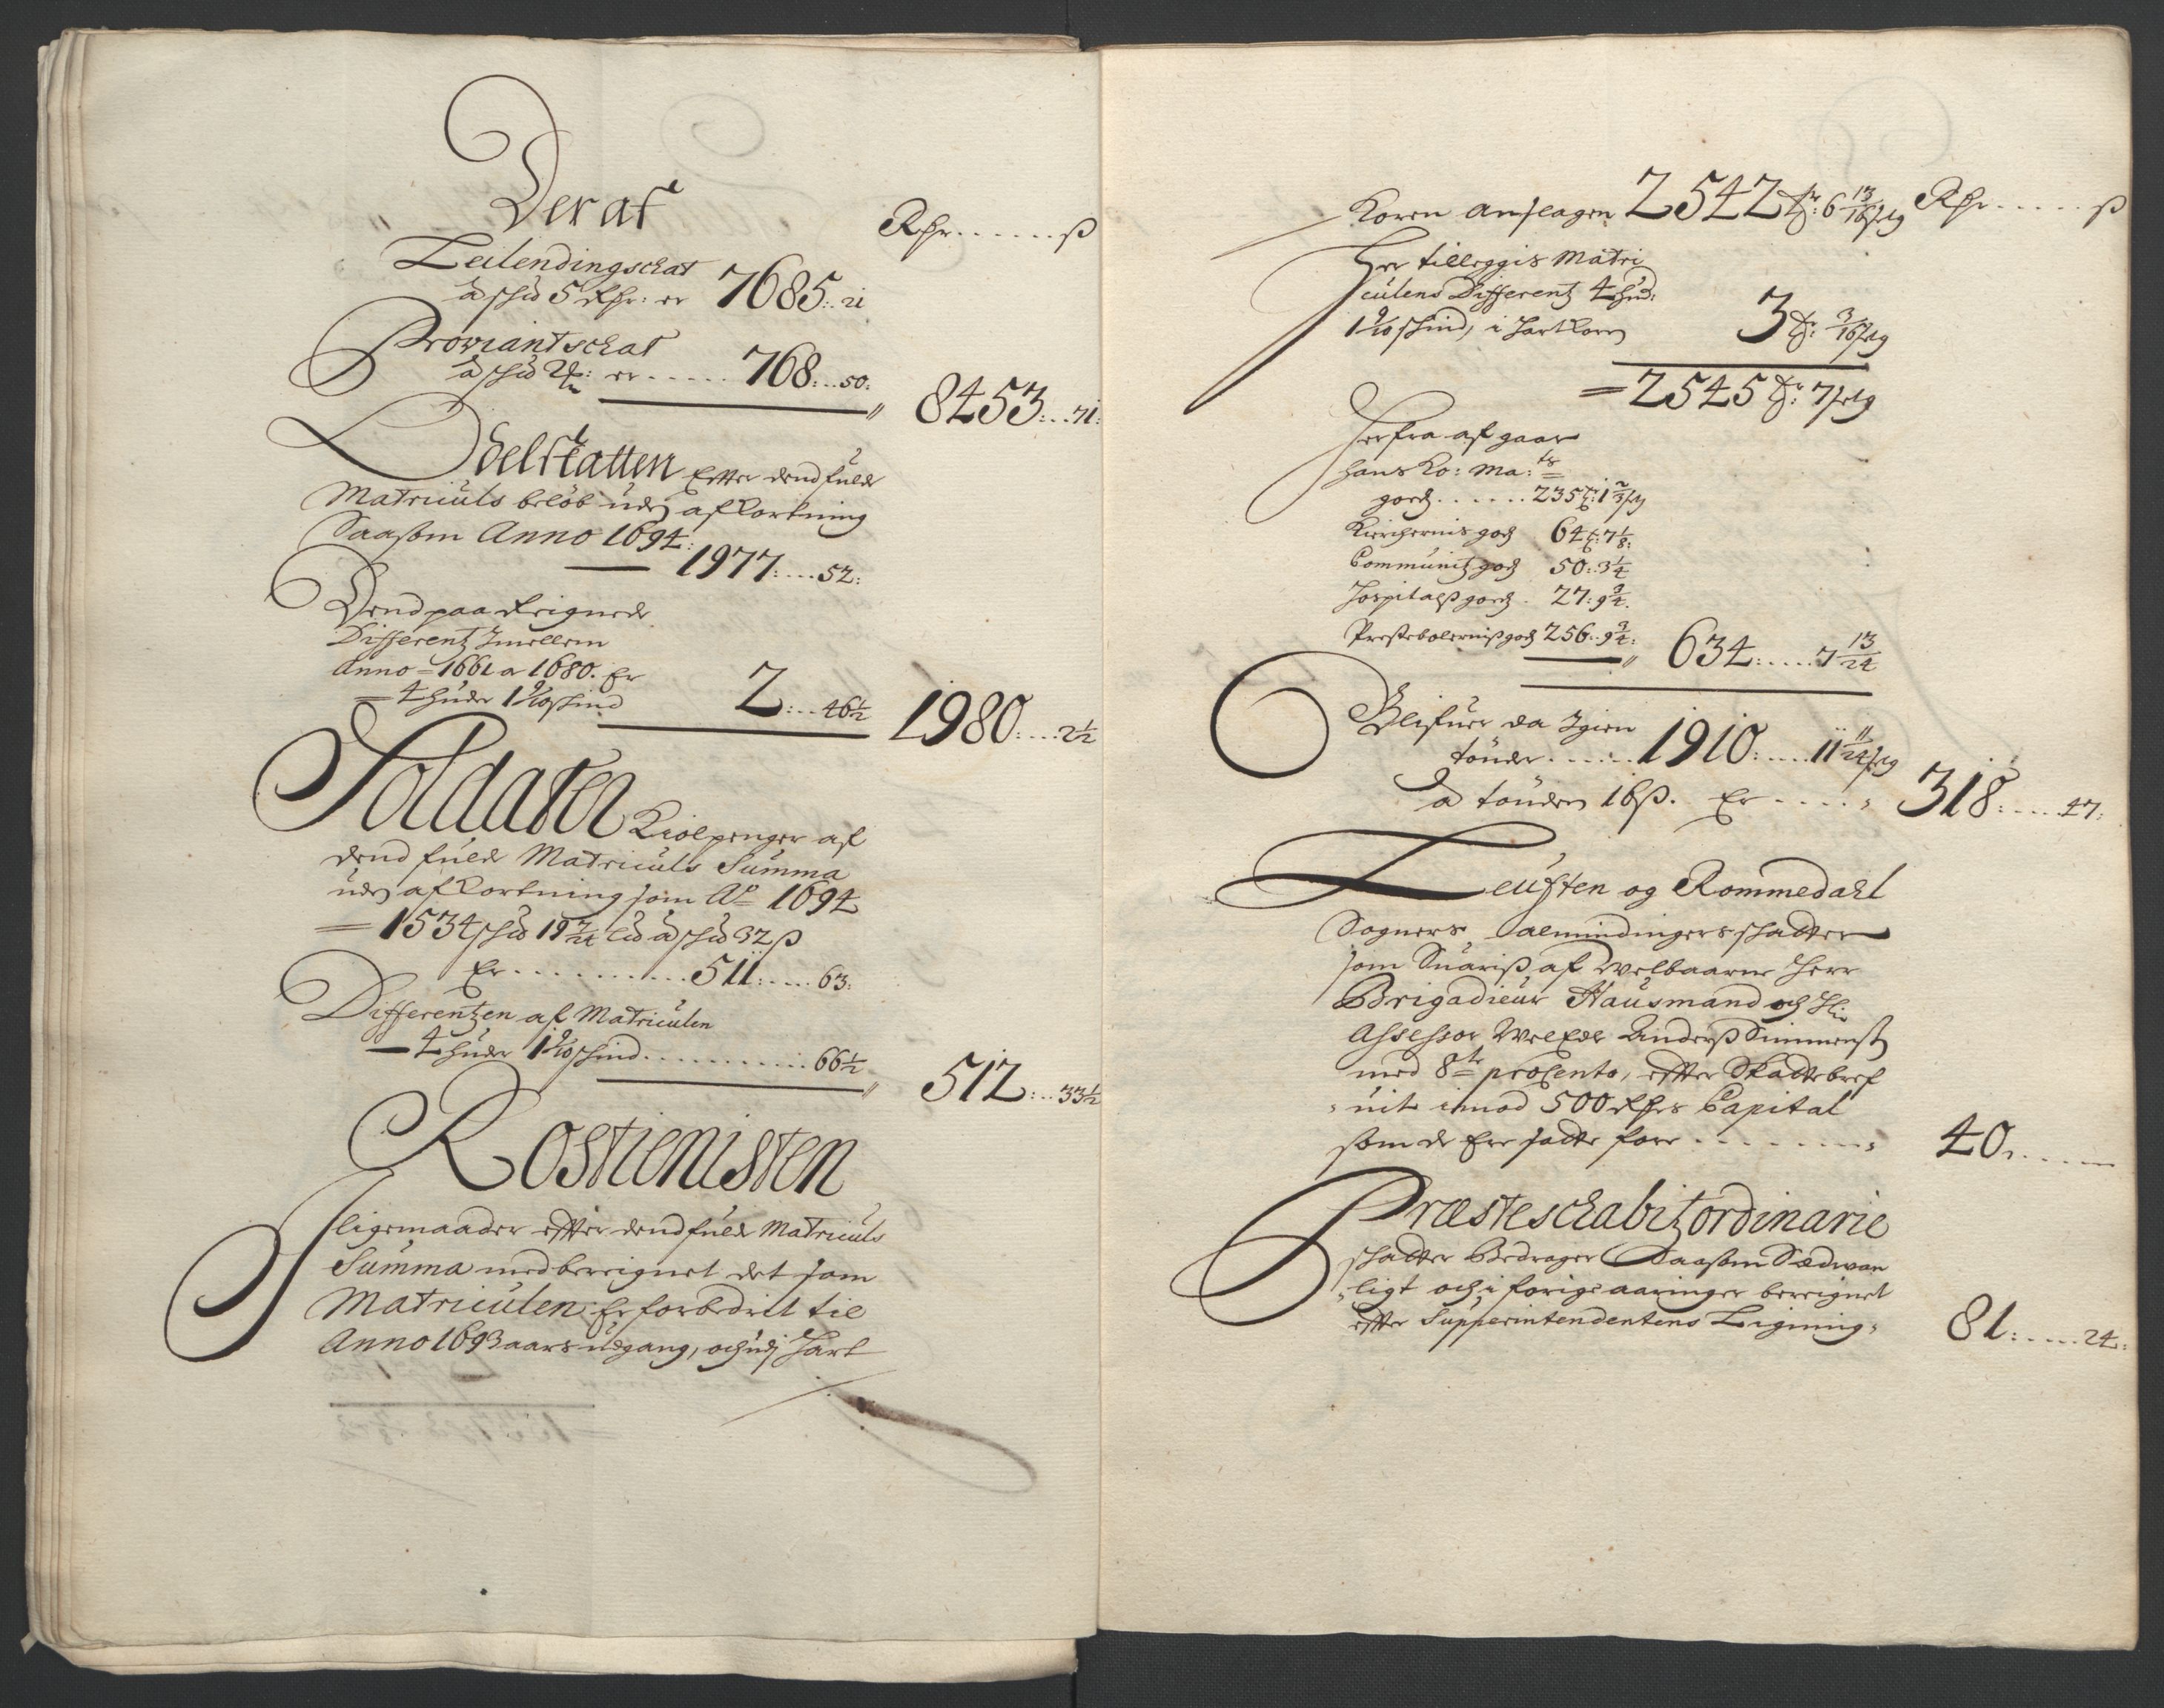 Der af
Rdr......ß
Leilendingschat
à schd 5 Rdr: er 7685: 21
Proviantschat
à schd ... er ..... 768:...50:
8453:...71:
Odelskatten Effter dend fulde
Matriculs beløb uden afkortning
Saasom Anno 1694:
1977:....52:
Dend paa Reignede
Differentz Imellem
Anno 1661 a 1680. Er
= 4 huder 1 9/10 skind 2:...46½
1980:....2½
Soldater Kiolpenger af
dend fulde Matriculs Summa
uden afkortning som Ao 1694
= 1534 schd 19 7/24 ... à schd 32 ß
Er...........511:....63:
Differentzen af Matriculen
4 huder 1 9/10 skind...........66½
512:...33½
Rostienisten
Iligemaader effter dend fulde Matriculs
Summa med bereignet det som
Matriculen Er forbedret til
Anno 1693 aars udgang, och udj Hart
Koren anslagen 2542 Tr: 6 13/16 ... Rdr.....ß
Her tilleggis Matri
culens Differentz 4 hud:
1 9/10 skind, i Hartkorn 3 Tr: 3/16 ...
= 2545 Tr: 7 ...
Herfra afgaar
hans Ko: Ma: ts
godz......235 Tr: 1 2/3 ...
Kierchernis godz 64 Tr: 7 1/8:
Communitz godz 50: 3¼
Hospitalß godz. 27: 9¾.
Prestebolerniß godz 256: 9¾:
634:.....7 13/24
Blifuer da Igien
tønder......1910:....11 11/24 ...
à tønden 16 ß. Er ....
318:....47:
Leuften og Rommedahl
Sogners Almindingers skatter
som Suariß af Welbaarne Herr
Brigadieur Hausmand och Hr
Assessor Welede Anderß Simmensß
med 8te procento, effter Skattebref
uit imod 500 Rdrs Capital
som de Ere satte for .......
40......
Præsteschabitz ordinarie
skatter Bedrager Saasom Sædwan
ligt och i forige aaringer bereignet
effter Supperintendentens Ligning,
81:.....24: